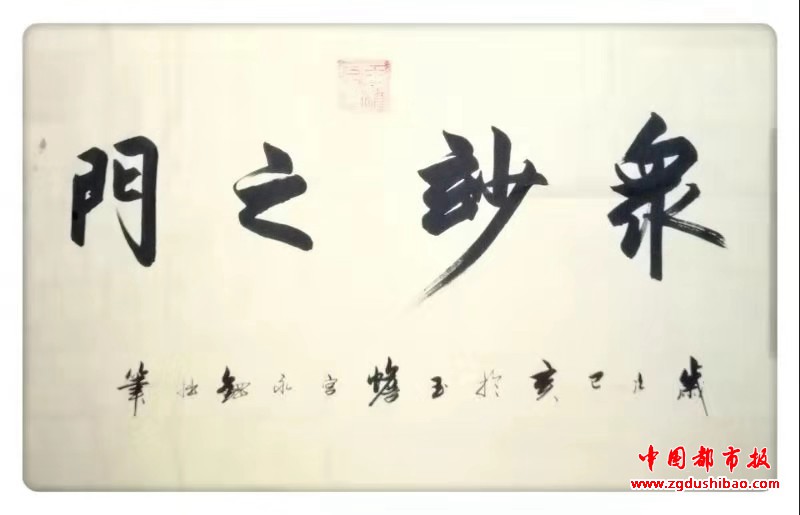 衆玅之門
歲己亥於玉蟾宮永拙筆
中国都市报
www.zgdushibao.com